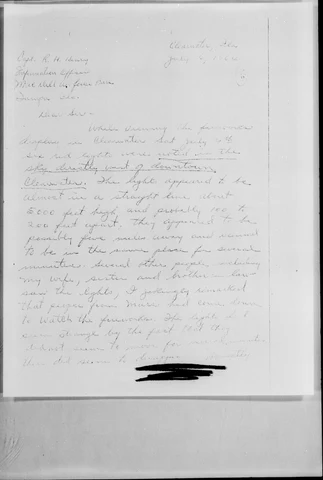 Clearwater, Fla
July
Capt. R. H. Henry
Information Officer
Mac Dill Air Force Base
Tampa Fla.
Dear Sir:-
While viewing the fireworks
display in Clearwater last July 4th
six red lights were noted in the
sky directly west of downtown
Clearwater. The lights appeared to be
almost in a straight line about
5000 feet high and possibly 100 to
200 feet apart. They appeared to be
possibly five miles away and seemed
to be in the same place for several
minutes. Several other people, including
my wife, sister and brother in law
saw the lights, I jokingly remarked
that people from Mars had come down
to watch the fireworks. The lights did
seem strange by the fact that they
didnt seem to move for several minutes
then did seem to